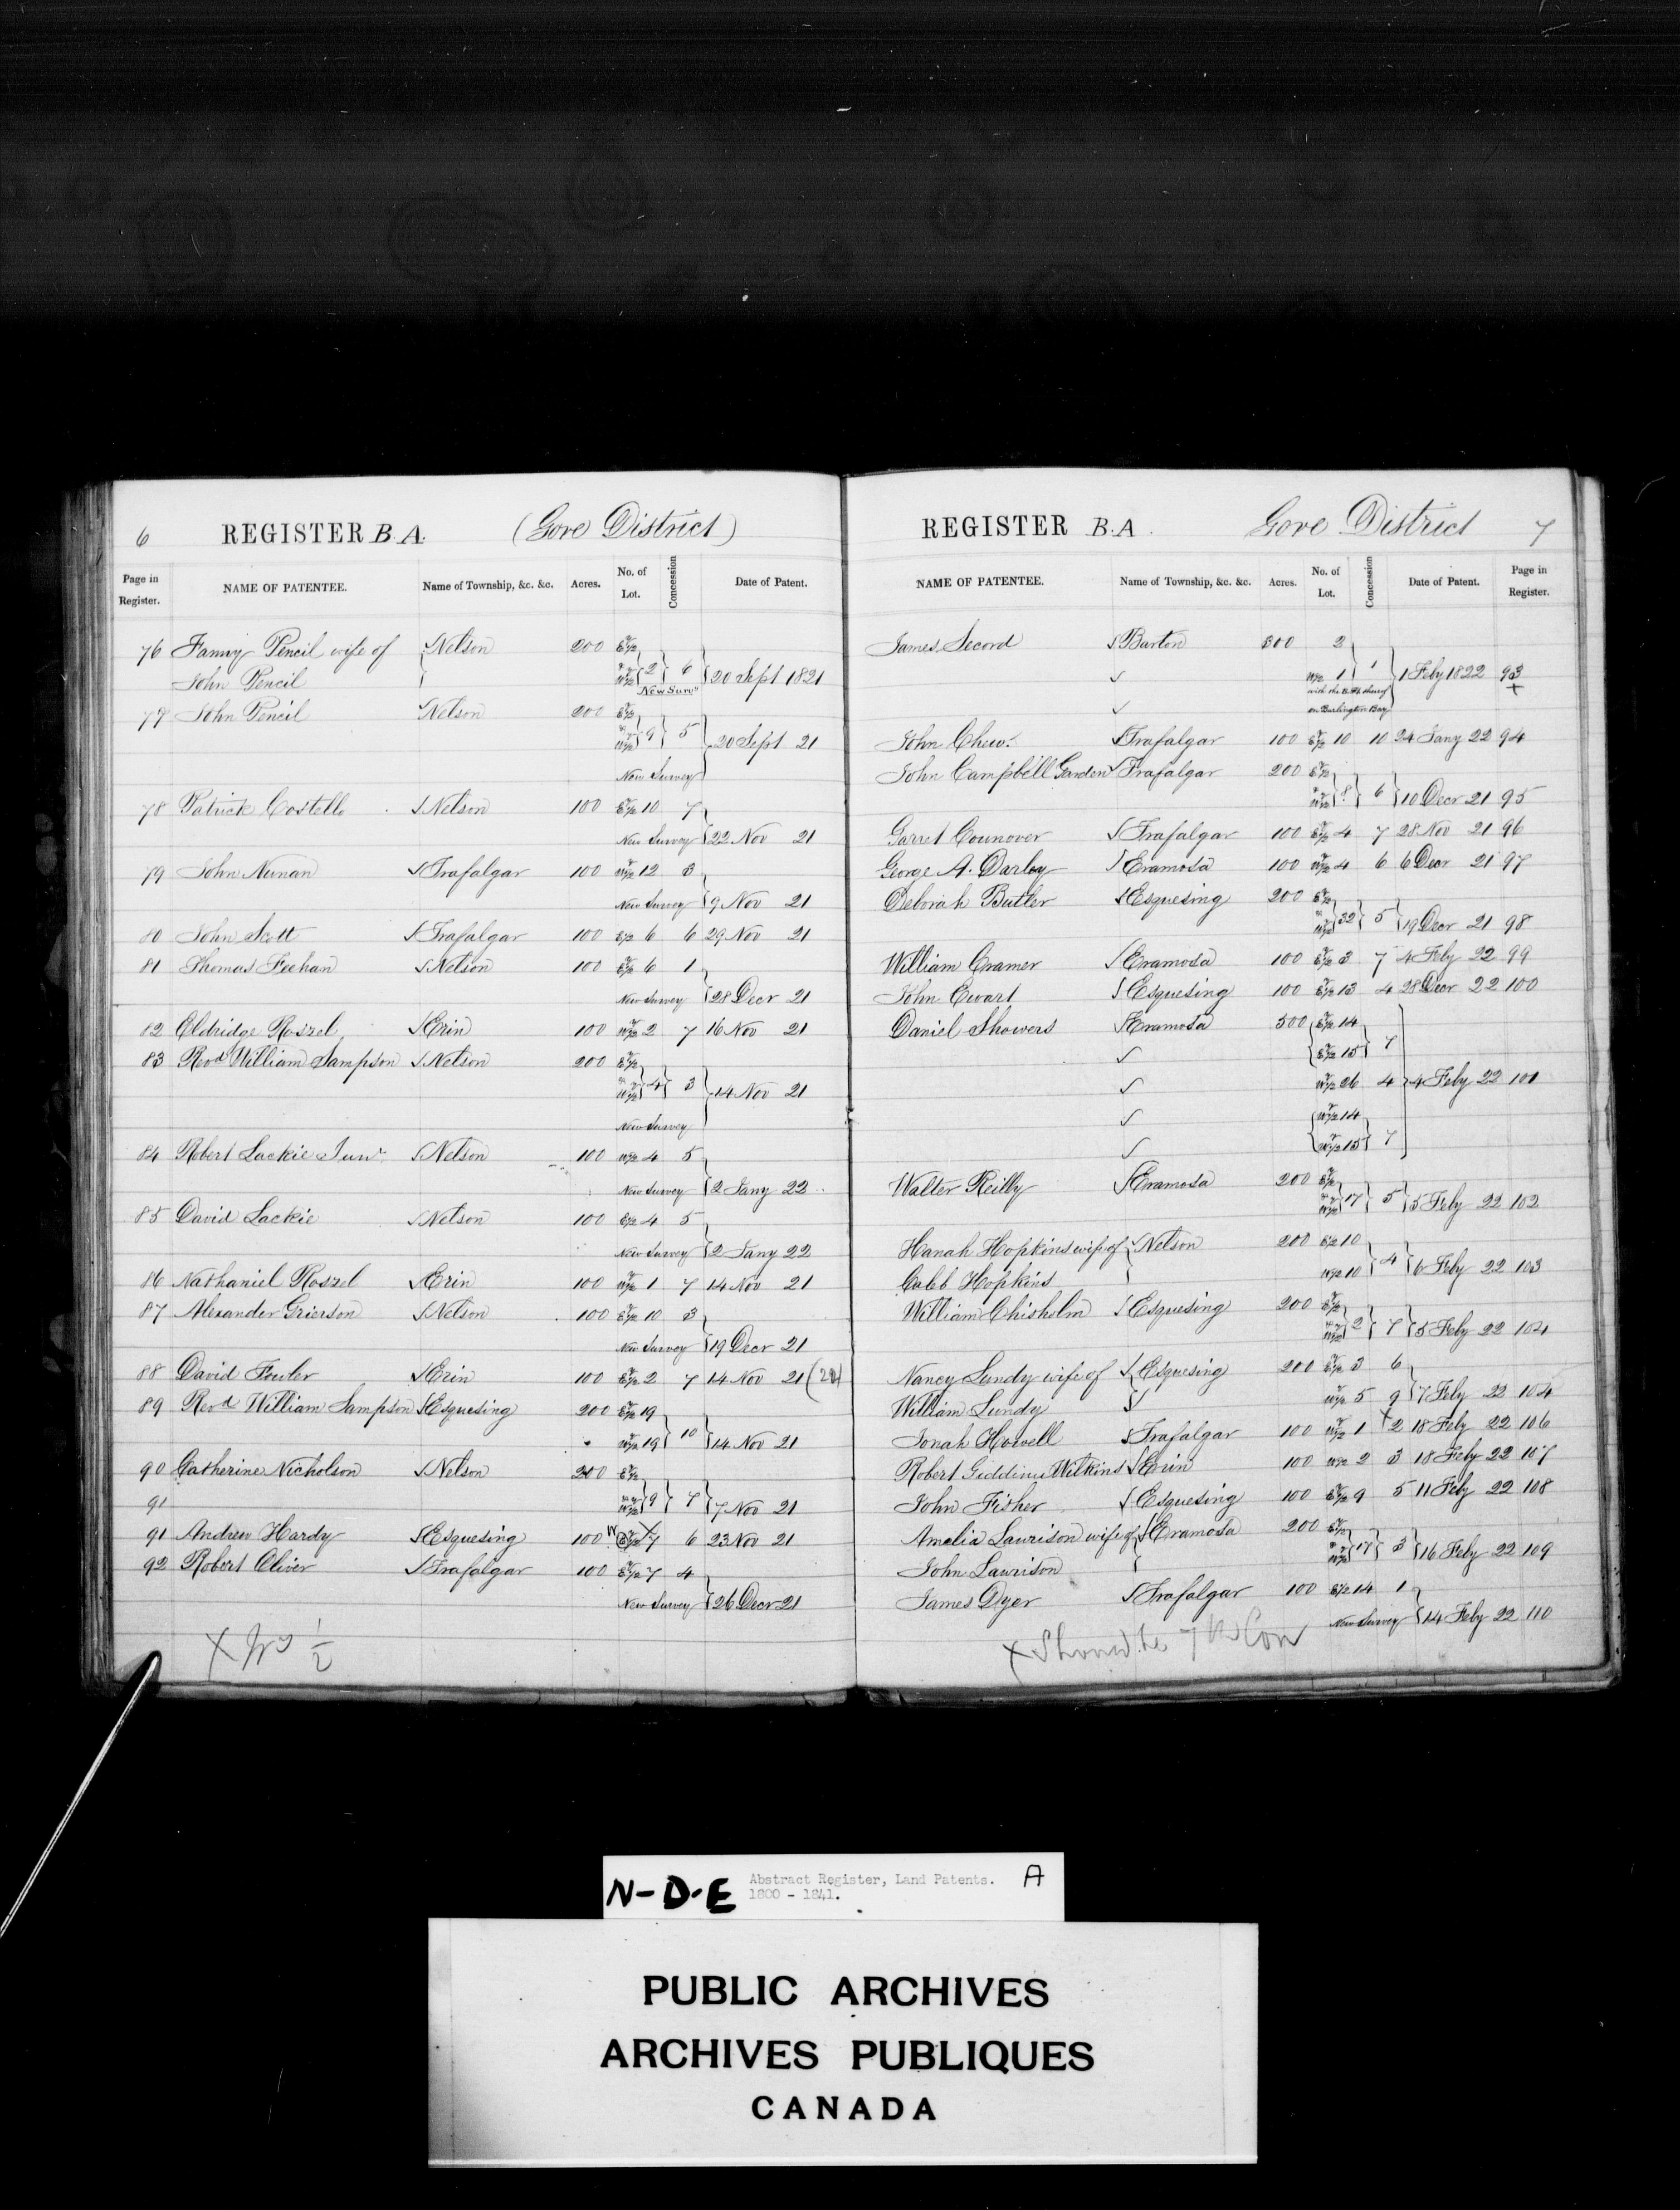 6 REGISTER B.A. (Gore District)
Page in Register. NAME OF PATENTEE. Name of Township, &c. &c. Acres. No. of Lot. Concession Date of Patent.
76 Fanny Pencil wife of Nelson 200 E½
John Pencil W½ 2 6 20 Sept 1821
New Survy
77 John Pencil Nelson 200 E½
W½ 9 5 20 Sept 21
New Survey
78 Patrick Costello Nelson 100 E½ 10 7
New Survey 22 Nov 21
79 John Nunan Trafalgar 100 W½ 12 3
New Survey 9 Nov 21
80 John Scott Trafalgar 100 E½ 6 6 29 Nov 21
81 Thomas Feehan Nelson 100 E½ 6 1
New Survey 28 Decr 21
82 Eldridge Roszel Erin 100 W½ 2 7 16 Nov 21
83 Revd William Sampson Nelson 200 E½
W½ 4 3 14 Nov 21
New Survey
84 Robert Lackie Junr Nelson 100 W½ 4 5
New Survey 2 Jany 22
85 David Lackie Nelson 100 E½ 4 5
New Survey 2 Jany 22
86 Nathaniel Roszel Erin 100 W½ 1 7 14 Nov 21
87 Alexander Grierson Nelson 100 E½ 10 3
New Survey 19 Decr 21
88 David Fowler Erin 100 E½ 2 7 14 Nov 21
89 Revd William Sampson Esquesing 200 E½ 19
W½ 19 10 14 Nov 21
90 Catherine Nicholson Nelson 200 E½
91 W½ 9 7 7 Nov 21
91 Andrew Hardy Esquesing 100 W E½ X 7 6 23 Nov 21
92 Robert Oliver Trafalgar 100 E½ 7 4
New Survey 26 Decr 21
X W ½
REGISTER B.A. Gore District 7
NAME OF PATENTEE. Name of Township, &c. &c. Acres. No. of Lot. Concession Date of Patent. Page in Register.
James Secord Barton 300 2
W½ 1 1 1 Feby 1822 93
on Burlington Bay
John Chew Trafalgar 100 E½ 10 10 24 Jany 22 94
John Campbell Garden Trafalgar 200 E½
W½ 8 6 10 Decr 21 95
Garret Counover Trafalgar 100 E½ 4 7 28 Nov 21 96
George A. Darby Eramosa 100 W½ 4 6 6 Decr 21 97
Deborah Butler Esquesing 200 E½
W½ 32 5 19 Decr 21 98
William Cramer Eramosa 100 E½ 3 7 4 Feby 22 99
John Ewart Esquesing 100 E½ 13 4 28 Decr 22 100
Daniel Showers Eramosa 500 E½ 14
E½ 15 7
W½ 26 4 4 Feby 22 101
W½ 14
W½ 15 7
Walter Reilly Eramosa 200 E½
W½ 17 5 5 Feby 22 102
Hanah Hopkins wife of Nelson 200 E½ 10
Caleb Hopkins W½ 10 4 6 Feby 22 103
William Chisholm Esquesing 200 E½
W½ 2 7 5 Feby 22 104
Nancy Lundy wife of Esquesing 200 E½ 3 6
William Lundy W½ 5 9 7 Feby 22 104
Jonah Howell Trafalgar 100 W½ 1 X 2 18 Feby 22 106
Robert Giddins Wilkins Erin 100 W½ 2 3 18 Feby 22 107
John Fisher Esquesing 100 E½ 9 5 11 Feby 22 108
Amelia Laurison wife of Eramosa 200 E½
John Laurison W½ 17 3 16 Feby 22 109
James Dyer Trafalgar 100 E½ 14 1
New Survey 14 Feby 22 110
X Should be 7th Con
N-D-E Abstract Register, Land Patents. A
1800 - 1841.
PUBLIC ARCHIVES
ARCHIVES PUBLIQUES
CANADA